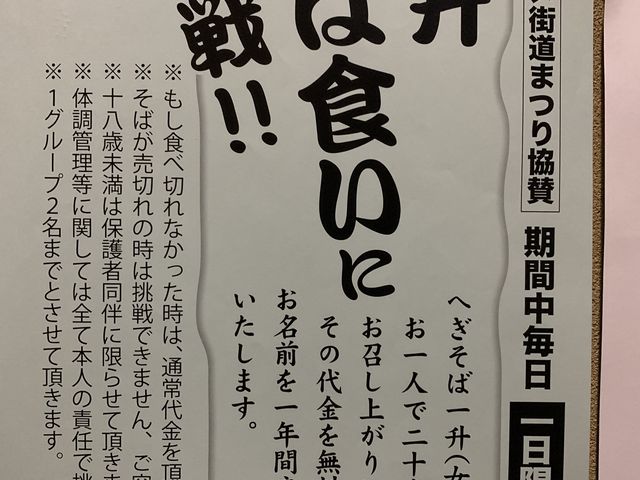 街道まつり協賛
期間中毎日
一日限
升
は食いに
戦!!
へぎそば一升(女
お一人で二十
お召し上がり
その代金を無
お名前を一年間
いたします。
※もし食べ切れなかった時は、通常代金を頂
※そばが売切れの時は挑戦できません、ご
※十八歳未満は保護者同伴に限らせて頂きま
※体調管理等に関しては全て本人の責任で挑
※1グループ2名までとさせて頂きます。